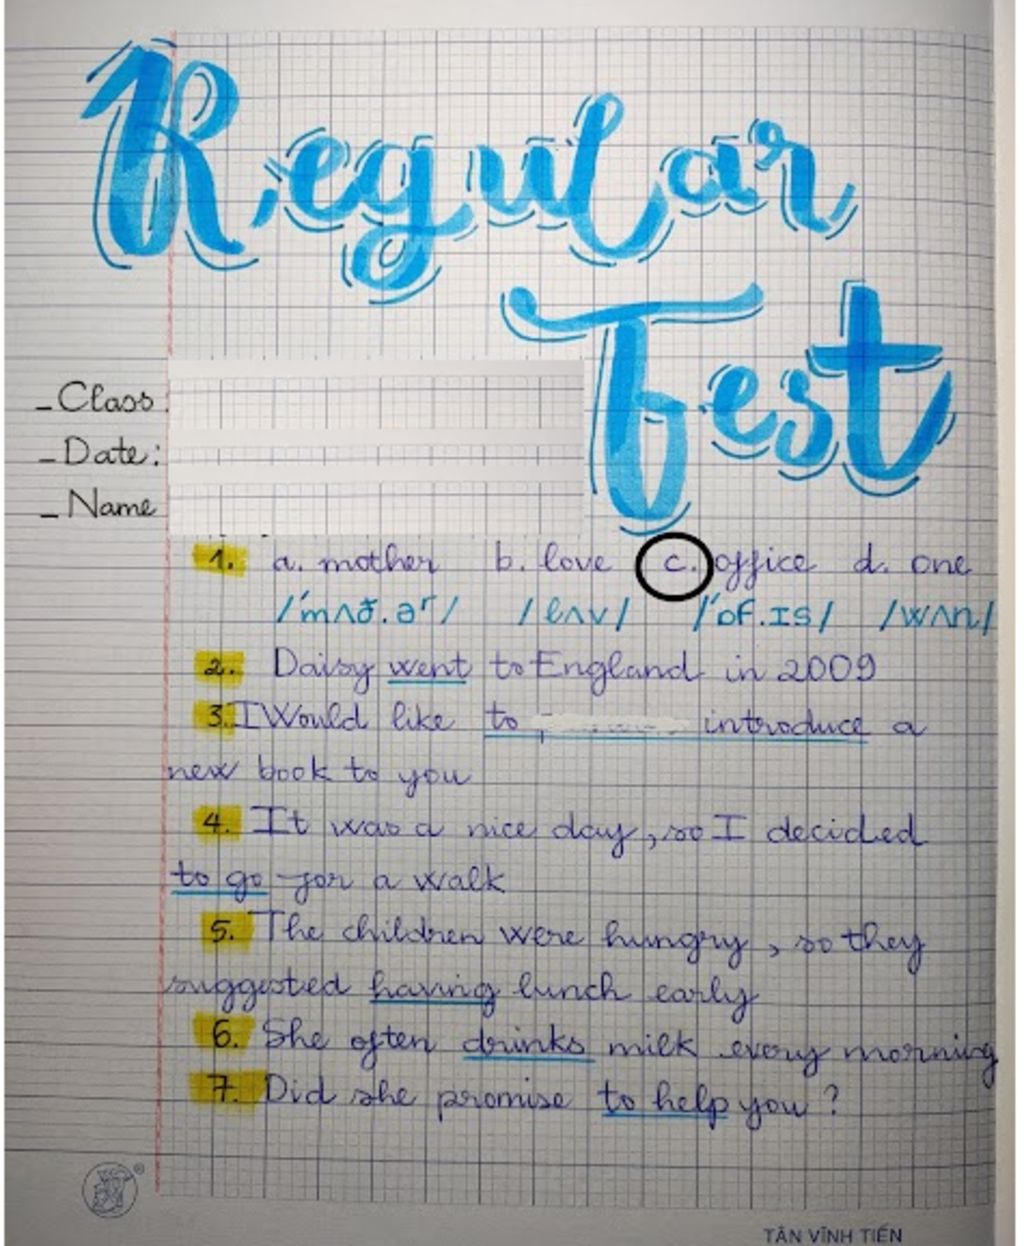 Regular
Test
_ Class :
_ Date :
_ Name
1. a. mother b. love c. office d. one
/ˈmʌð.əʳ/ /lʌv/ /ˈɒf.ɪs/ /wʌn/
2. Daisy went to England in 2009
3. I Would like to introduce a
new book to you
4. It was a nice day, so I decided
to go for a walk
5. The children were hungry, so they
suggested having lunch early
6. She often drinks milk every morning
7. Did she promise to help you ?
®
TÂN VĨNH TIẾN